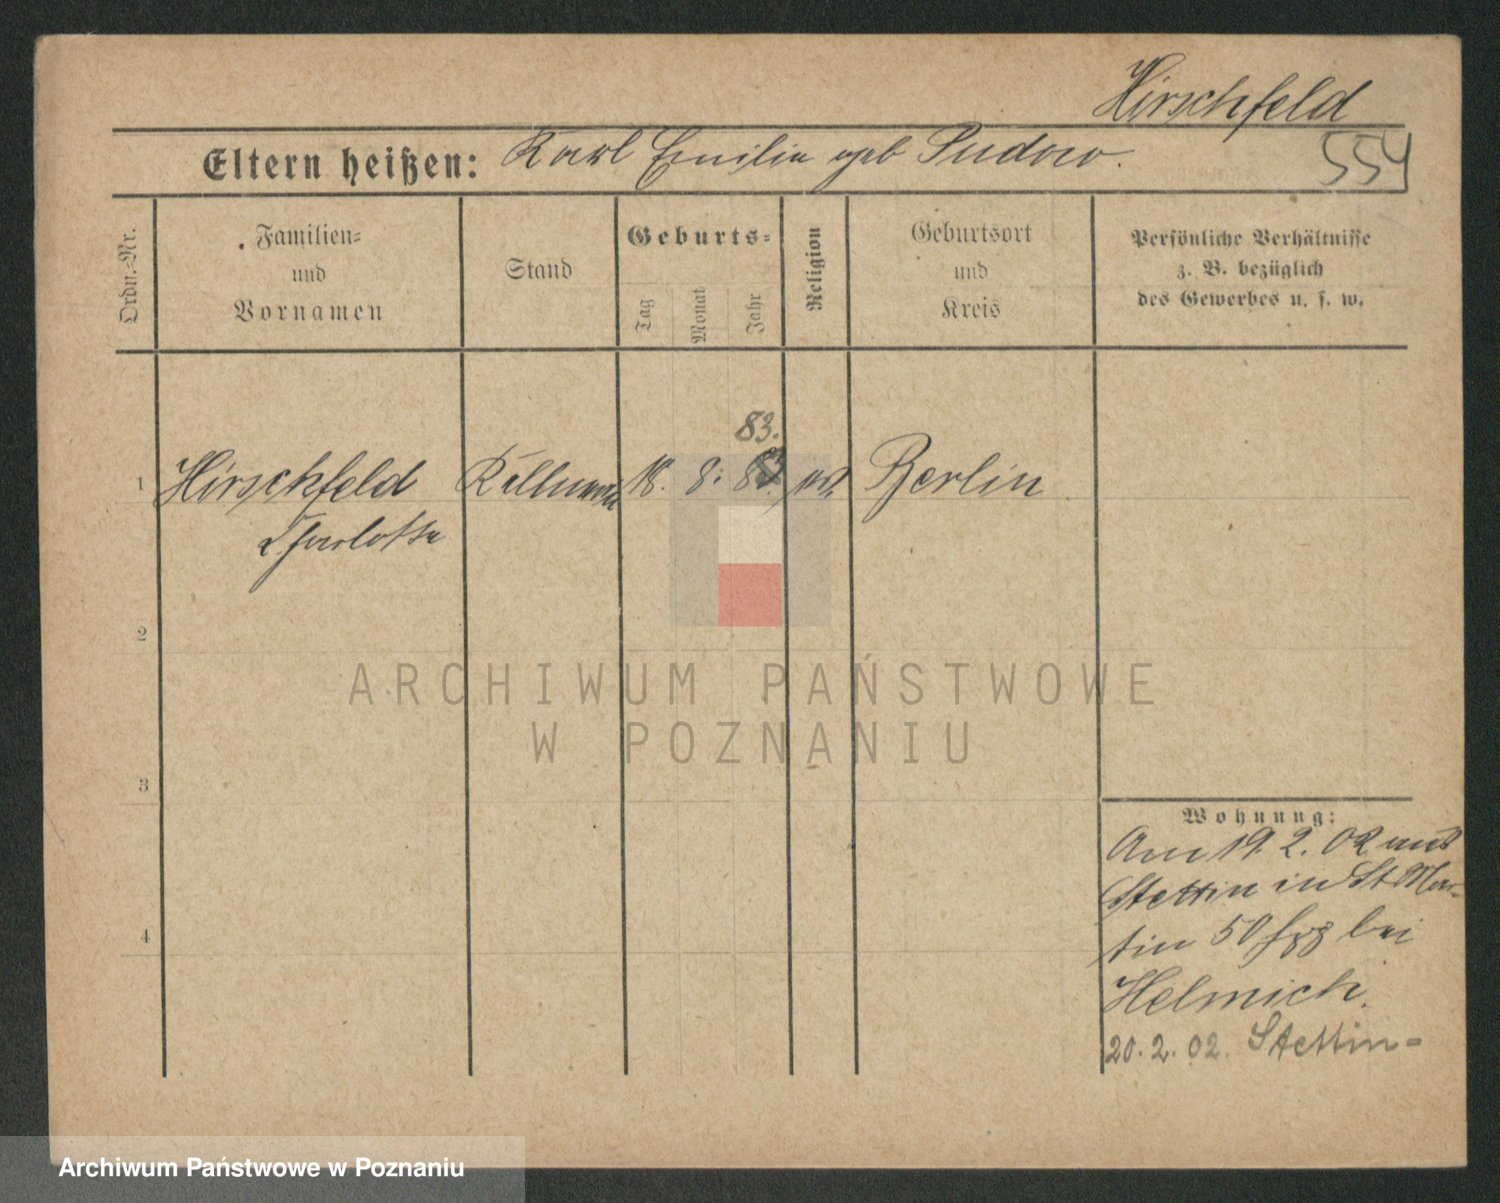 Hirschfeld
Eltern heißen: Karl Emilie geb Pudow.
554
Ordn.-Nr.
Familien-
und
Vornamen
Stand
Geburts-
Tag
Monat
Jahr
Religion
Geburtsort
und
Kreis
Persönliche Verhältnisse
z. B. bezüglich
des Gewerbes u. s. w.
83.
1 Hirschfeld Kellnerin 18. 8. Berlin
Charlotte
2
3
4
Wohnung:
Am 19. 2. 02 aus
Stettin in St Mar-
tin 50 bei
Helmich.
20. 2. 02. Stettin-
ARCHIWUM PAŃSTWOWE
W POZNANIU
Archiwum Państwowe w Poznaniu